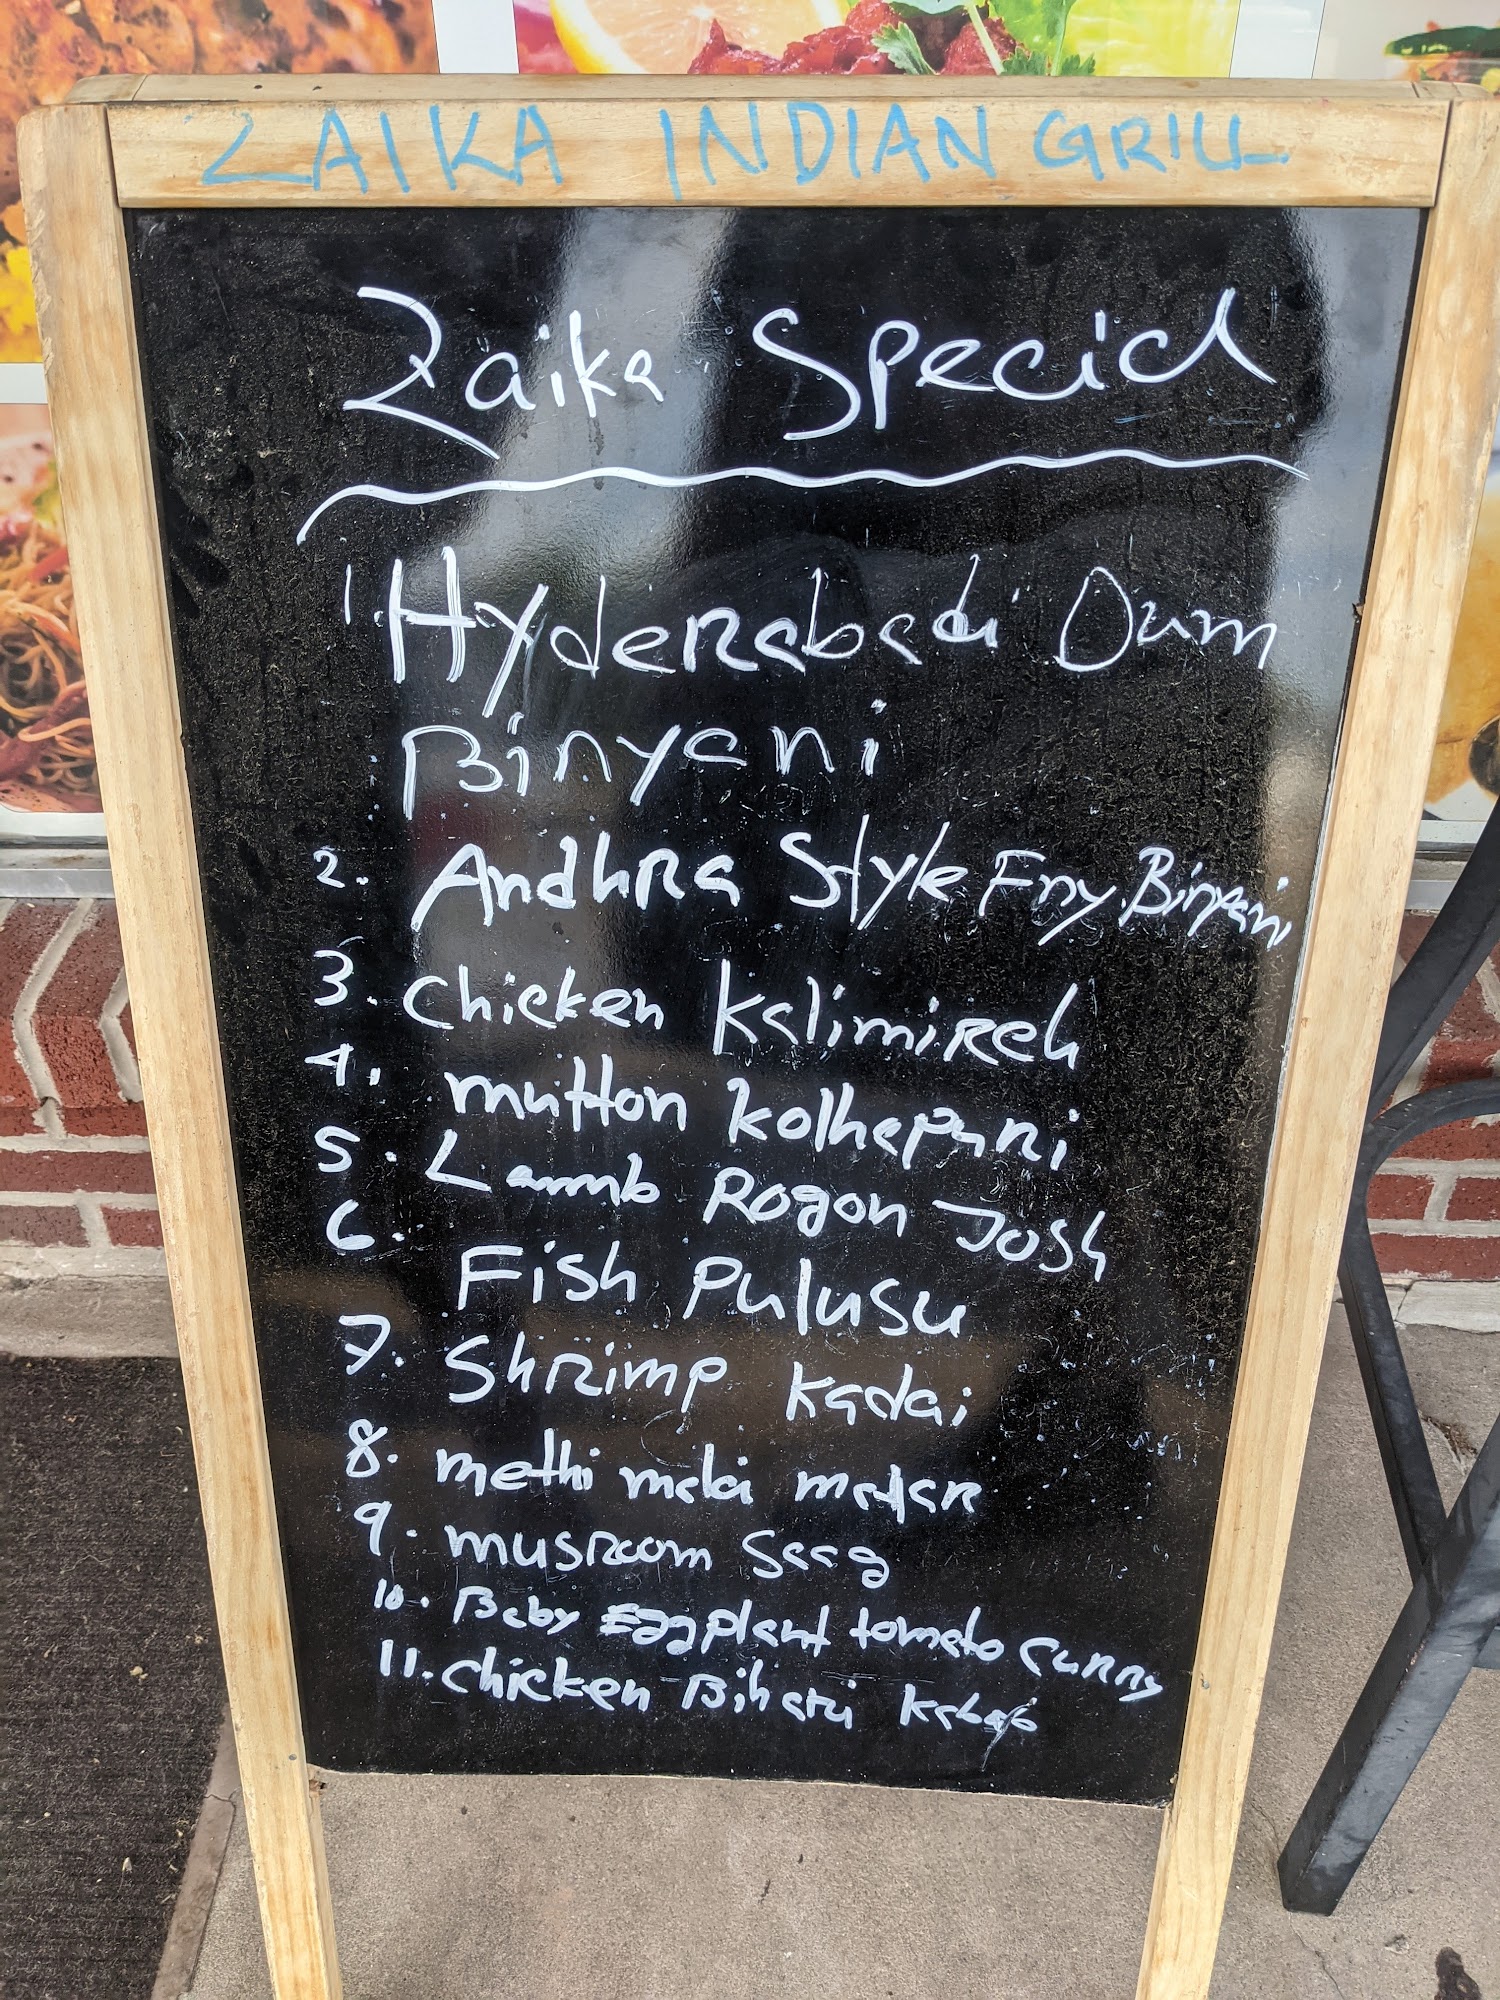 ZAIKA INDIAN GRILL
Zaika Special
1. Hyderabadi Dum
Biryani
2. Andhra Style Fry Biryani
3. Chicken Kalimireh
4. mutton kolhapuri
5. Lamb Rogon Josh
6. Fish Pulusu
7. Shrimp Kadai
8. methi malai matar
9. musroom Saag
10. Baby Eggplant tomato curry
11. Chicken Bihari Kabab